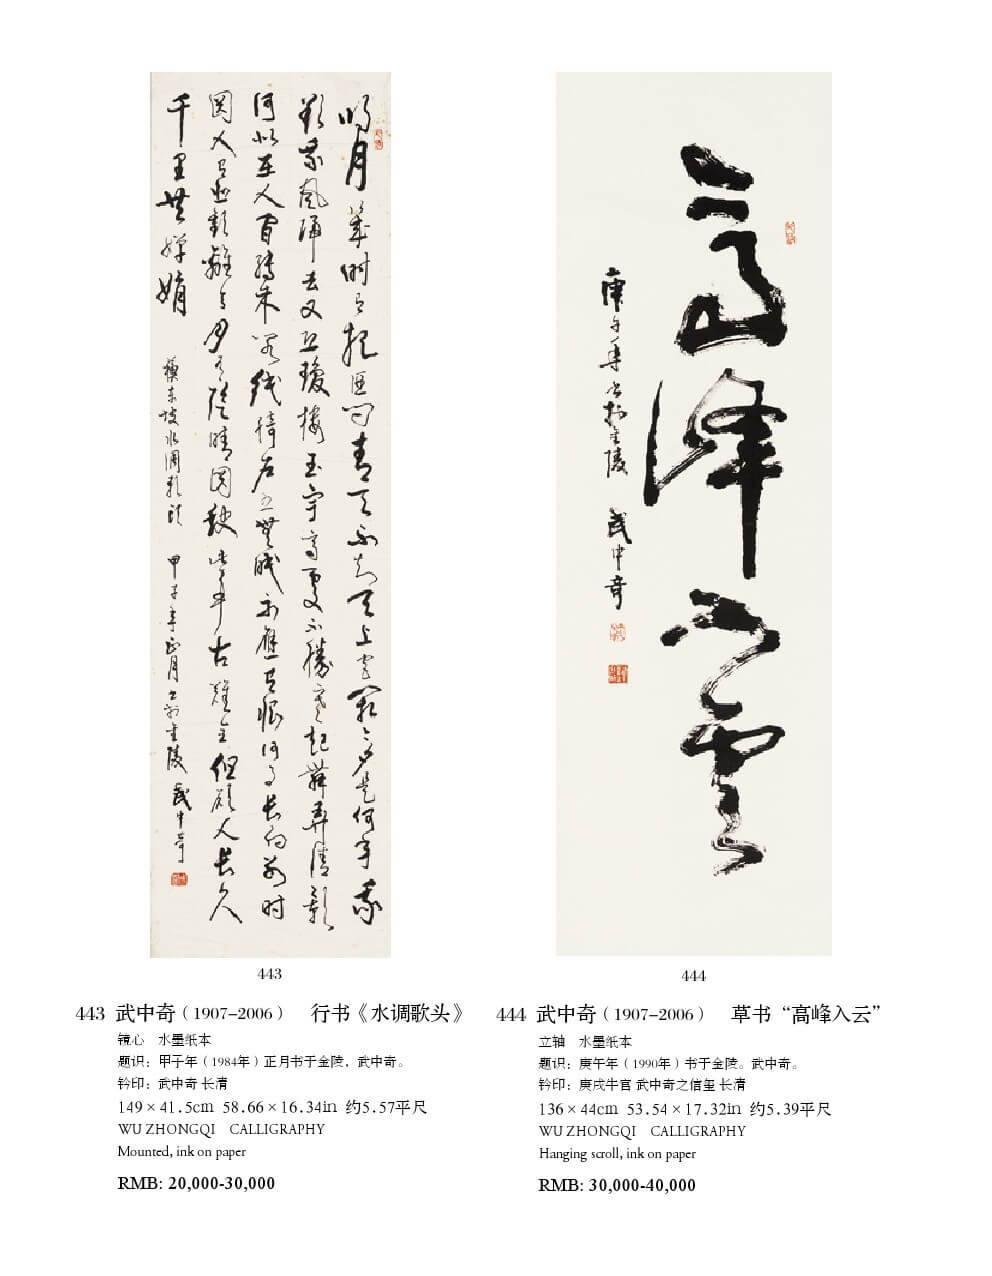 明月幾時有把酒問青天不知天上宮闕今夕是何年我
欲乘風歸去又恐瓊樓玉宇高處不勝寒起舞弄清影
何似在人間轉朱閣低綺户照無眠不應有恨何事長向別時
圓人有悲歡離合月有陰晴圓缺此事古難全但願人長久
千里共嬋娟
蘇東坡水調歌頭 甲子年正月書於金陵 武中奇
443
高峰入雲
庚午年書於金陵 武中奇
444
443 武中奇（1907–2006） 行书《水调歌头》
镜心 水墨纸本
题识：甲子年（1984年）正月书于金陵，武中奇。
钤印：武中奇 长清
149×41.5cm 58.66×16.34in 约5.57平尺
WU ZHONGQI CALLIGRAPHY
Mounted, ink on paper
RMB: 20,000-30,000
444 武中奇（1907–2006） 草书“高峰入云”
立轴 水墨纸本
题识：庚午年（1990年）书于金陵。武中奇。
钤印：庚戌牛官 武中奇之信玺 长清
136×44cm 53.54×17.32in 约5.39平尺
WU ZHONGQI CALLIGRAPHY
Hanging scroll, ink on paper
RMB: 30,000-40,000